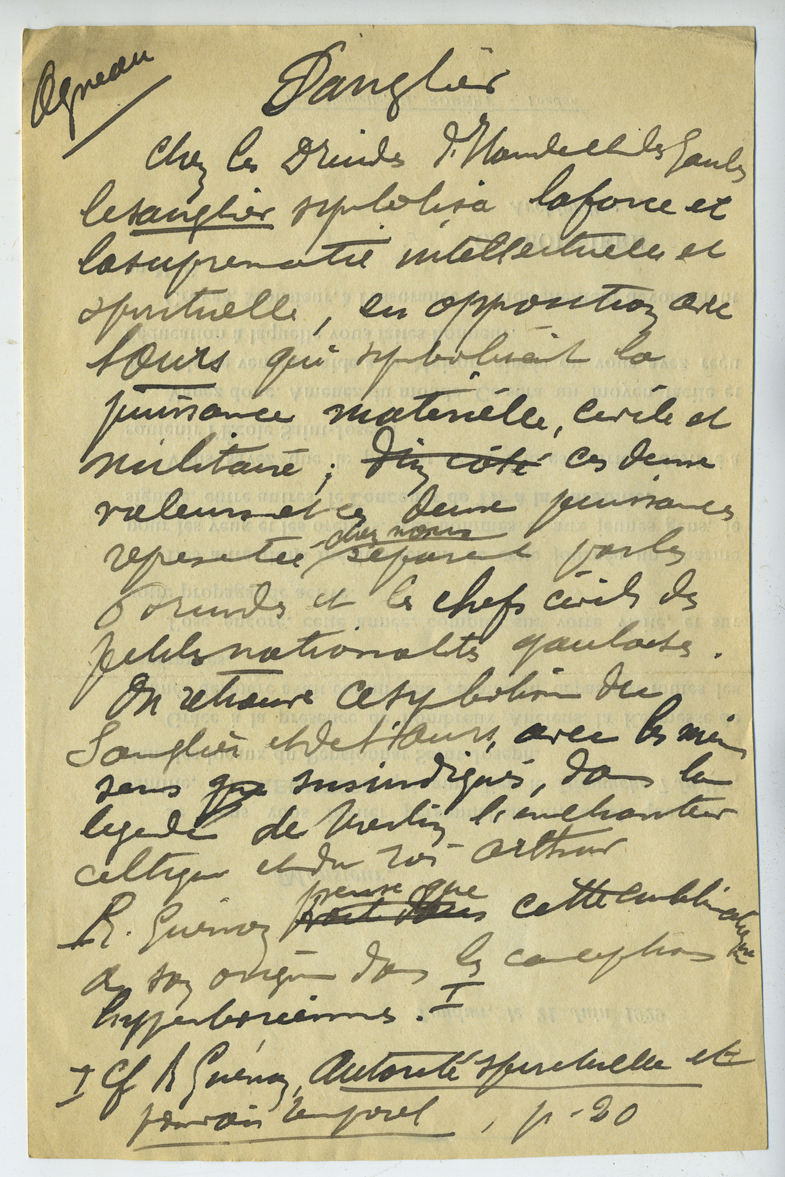 Agneau
Sanglier
Chez les Druides d'Irlande et des Gaules
le sanglier symbolisa la force et
la suprématie intellectuelle et
spirituelle, en opposition avec
l'ours qui symbolisait la
puissance matérielle, civile et
militaire ; ces deux
valeurs et ces deux puissances
chez nous
représentée par les
Druides et les chefs civils des
petites nationalités gauloises.
On retrouve ce symbolisme du
Sanglier et de l'Ours, avec les mêmes
sens susindiqués, dans la
légende de Merlin l'enchanteur
celtique et du roi Arthur
pense que
R. Guénon cette emblématique
a son origine dans les conceptions
hyperboréennes. I
I Cf R Guénon, Autorité spirituelle et
pouvoir temporel, p. 20